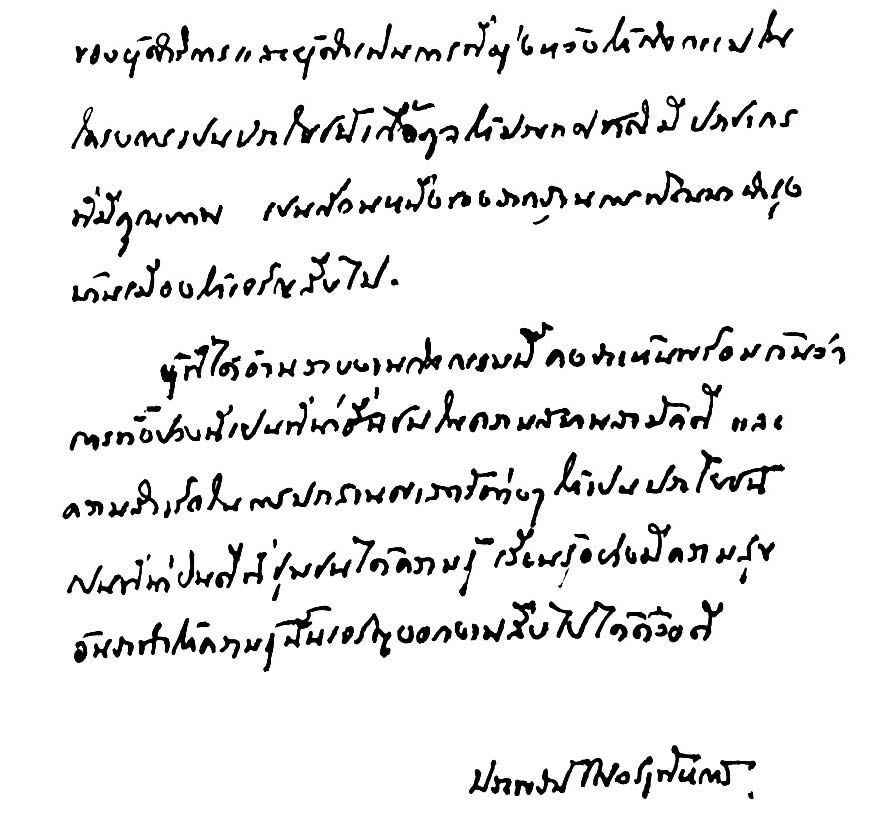 ของผู้ดำริการและผู้ดำเนินการที่มุ่งหวังให้กิจกรรมใน
โครงการเป็นประโยชน์เกื้อกูลให้ประเทศชาติมีประชากร
ที่มีคุณภาพ เป็นส่วนหนึ่งของรากฐานการพัฒนาบำรุง
บ้านเมืองให้เจริญสืบไป.
ผู้ที่ได้อ่านรายงานกิจกรรมนี้ คงจะเห็นพร้อมกันว่า
การทั้งปวงนี้เป็นที่น่าชื่นชมในความสมานสามัคคี และ
ความสำเร็จในการประสานศาสตร์ต่างๆ ให้เป็นประโยชน์
เป็นที่น่ายินดีที่ชุมชนได้ความรู้ เรียนรู้อย่างมีความสุข
อันจะทำให้ความรู้นั้นเจริญงอกงามสืบไปได้ด้วยดี